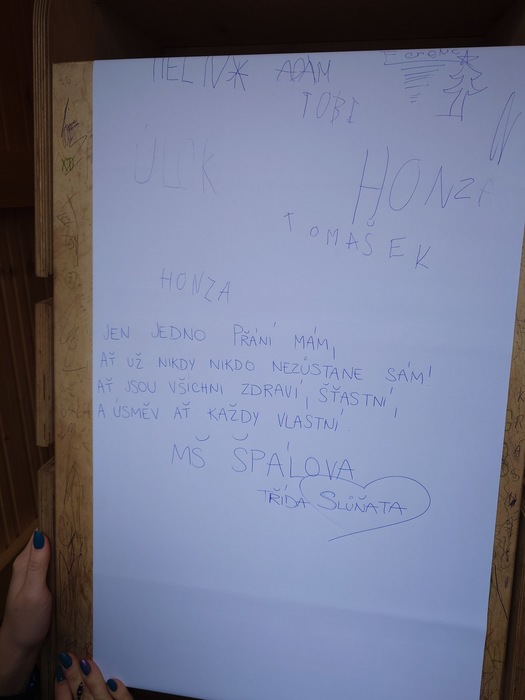 ADAM
TOBI
HONZA
TOMAŠEK
HONZA
JEN JEDNO PŘÁNÍ MÁM,
AŤ UŽ NIKDY NIKDO NEZŮSTANE SÁM!
AŤ JSOU VŠICHNI ZDRAVÍ, ŠŤASTNÍ,
A ÚSMĚV AŤ KAŽDY VLASTNÍ.
MŠ ŠPÁLOVA
TŘÍDA SLŮŇATA